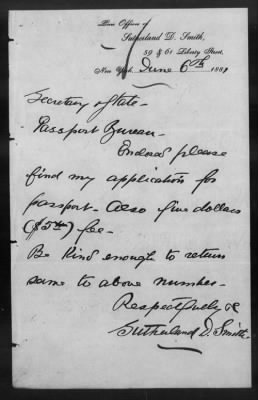 Law Office of
Sutherland D. Smith,
59 & 61 Liberty Street,
New York, June 6th 1889
Secretary of State -
Passport Bureau -
Enclosed please
find my application for
passport - Also five dollars
($5.00) fee -
Be kind enough to return
same to above number -
Respectfully &c
Sutherland D. Smith